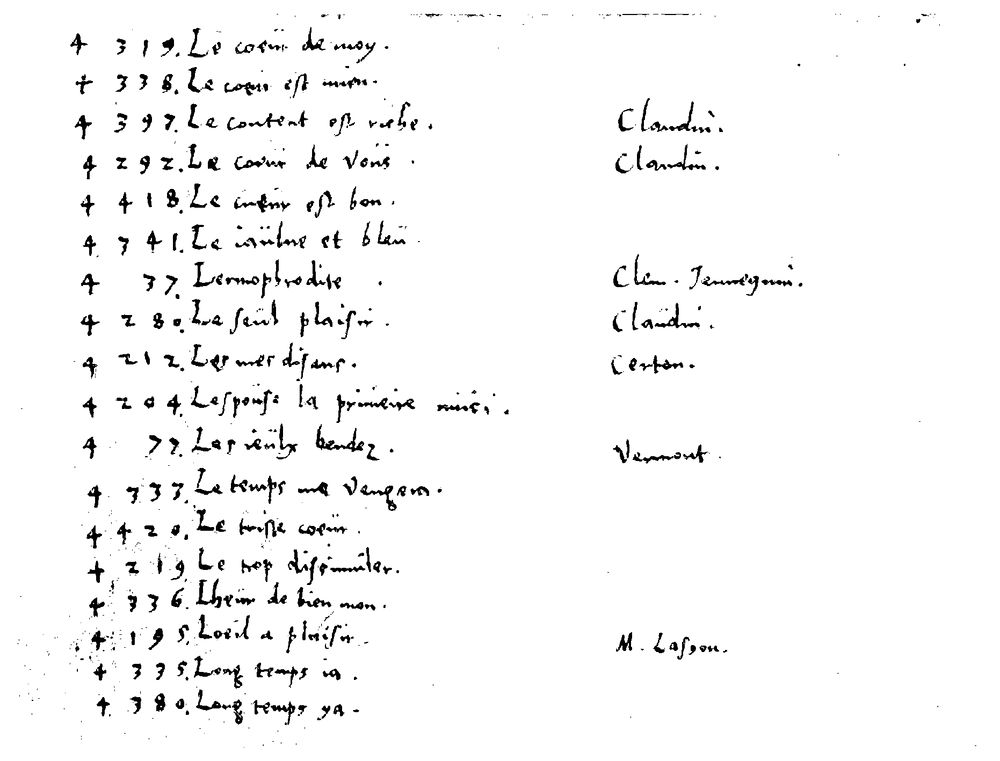 4 319. Le coeur de moy.
4 338. Le coeur est mien.
4 397. Le content est riche. Claudin.
4 292. Le coeur de vous. Claudin.
4 418. Le cueur est bon.
4 341. Le iaulne et bleu.
4 37. Lermophrodite. Clem. Jennequin.
4 280. Le seul plaisir. Claudin.
4 212. Les mesdisans. Certon.
4 204. Lespouse la primeire
4 77. Les ieulx bendez. Vermont.
4 333. Le temps me vengera.
4 420. Le triste coeur.
4 219 Le trop dissimuler.
4 336. Lheur de bien mon.
4 195. Loeil a plaisir. M. Lasson.
4 335. Long temps ia.
4 380. Long temps ya.